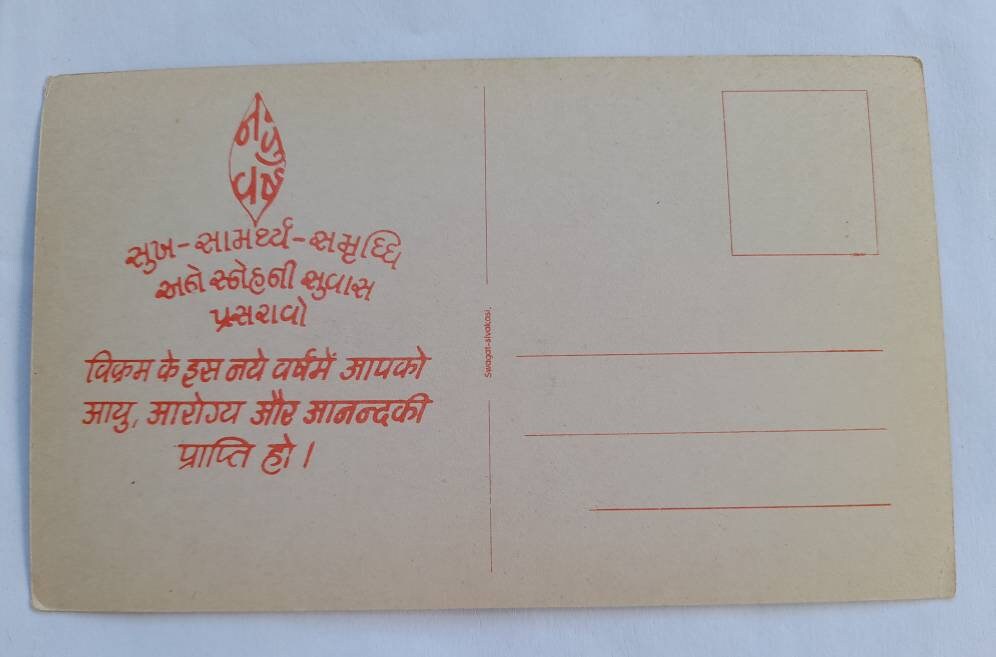 નવું
વર્ષ
સુખ-સામર્થ્ય-સમૃધ્ધિ
અને સ્નેહની સુવાસ
પ્રસરાવો
विक्रम के इस नये वर्षमें आपको
आयु, आरोग्य और आनन्दकी
प्राप्ति हो।
Swagat-sivakasi.